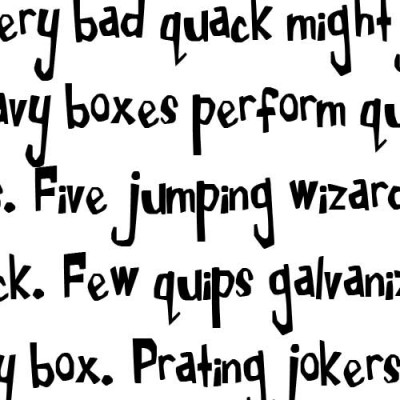 ery bad quack might
avy boxes perform qu
s. Five jumping wizard
ck. Few quips galvaniz
y box. Prating jokers